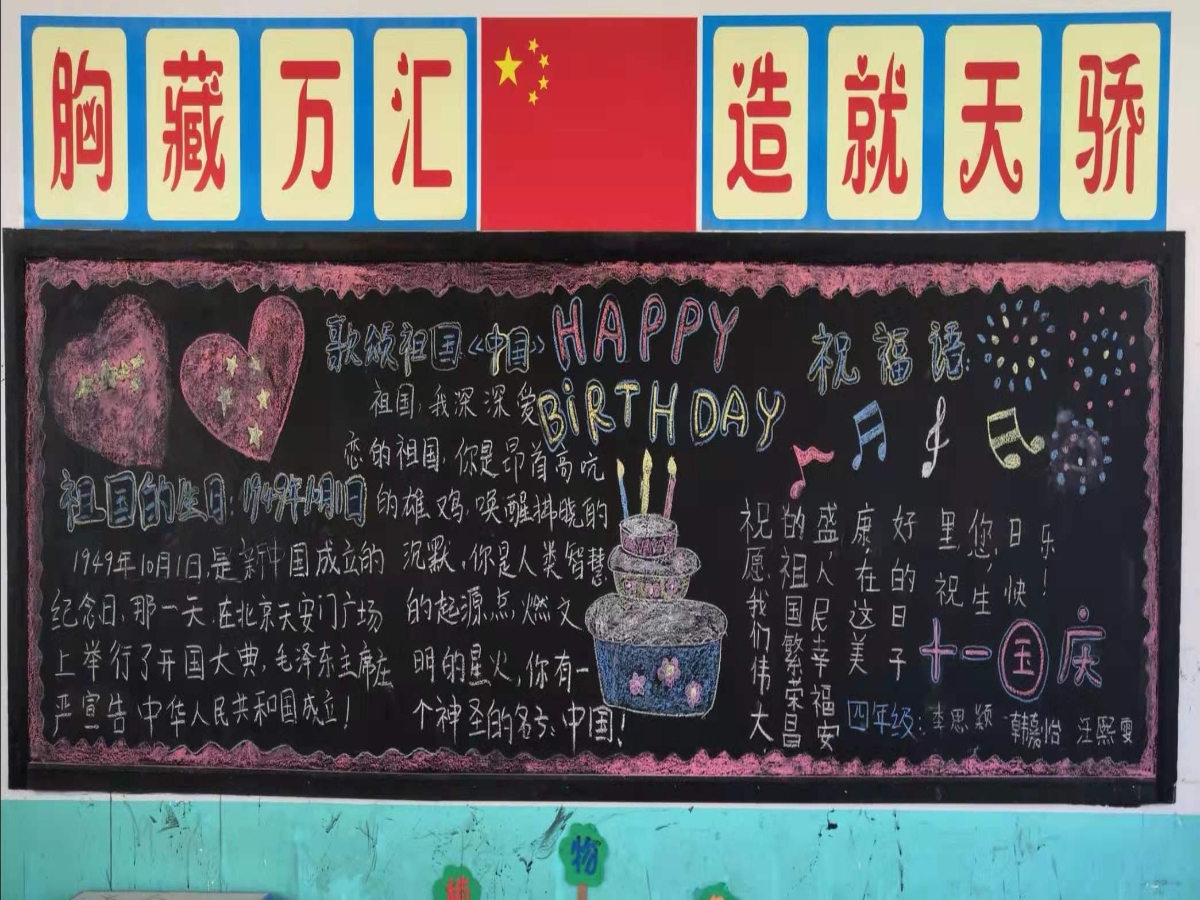 胸藏万汇
造就天骄
歌颂祖国《中国》
祖国，我深深爱
恋的祖国，你是昂首高吭
的雄鸡，唤醒拂晓的
沉默，你是人类智慧
的起源，点燃文
明的星火，你有一
个神圣的名兮：中国！
祖国的生日：1949年10月1日
1949年10月1日，是新中国成立的
纪念日，那一天，在北京天安门广场
上举行了开国大典，毛泽东主席庄
严宣告中华人民共和国成立！
HAPPY
BiRTHDAY
祝福语：
祝愿我们伟大
的祖国繁荣昌
盛，人民幸福安
康，在这美
好的日子
里，祝
您，生
日快
乐！
十一国庆
四年级：李思颖 韩嘉怡 汪熙雯
物